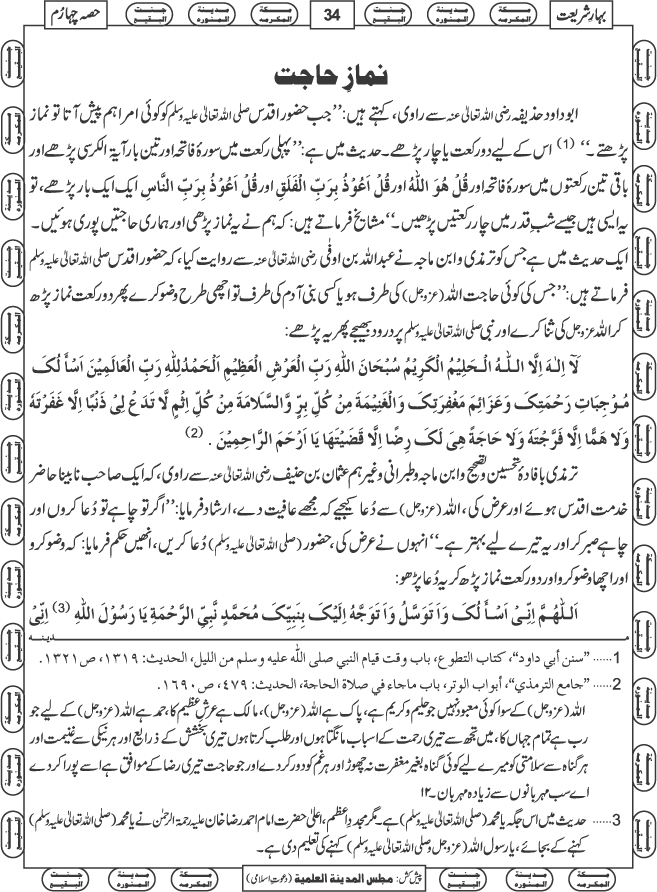 بہارِ شریعت
مـکـۃ المکرمہ
مـدیـنۃ المنورہ
جـنـت البقیع
34
مـکـۃ المکرمہ
مـدیـنۃ المنورہ
جـنـت البقیع
حصہ چہارم
نمازِ حاجت
ابوداود حذیفہ رضی اللہ تعالیٰ عنہ سے راوی، کہتے ہیں: ’’جب حضور اقدس صلی اللہ تعالیٰ علیہ وسلم کو کوئی امر اہم پیش آتا تو نماز
پڑھتے۔‘‘ (1) اس کے لیے دو رکعت یا چار پڑھے۔ حدیث میں ہے: ’’پہلی رکعت میں سورۂ فاتحہ اور تین بار آیۃ الکرسی پڑھے اور
باقی تین رکعتوں میں سورۂ فاتحہ اور قُلْ ھُوَ اللہُ اور قُلْ اَعُوْذُ بِرَبِّ الْفَلَقِ اور قُلْ اَعُوْذُ بِرَبِّ النَّاسِ ایک ایک بار پڑھے، تو
یہ ایسی ہیں جیسے شبِ قدر میں چار رکعتیں پڑھیں۔‘‘ مشایخ فرماتے ہیں: کہ ہم نے یہ نماز پڑھی اور ہماری حاجتیں پوری ہوئیں۔
ایک حدیث میں ہے جس کو ترمذی و ابن ماجہ نے عبداللہ بن اوفیٰ رضی اللہ تعالیٰ عنہ سے روایت کیا، کہ حضور اقدس صلی اللہ تعالیٰ علیہ وسلم
فرماتے ہیں: ’’جس کی کوئی حاجت اللہ (عزوجل) کی طرف ہو یا کسی بنی آدم کی طرف تو اچھی طرح وضو کرے پھر دو رکعت نماز پڑھ
کر اللہ عزوجل کی ثنا کرے اور نبی صلی اللہ تعالیٰ علیہ وسلم پر درود بھیجے پھر یہ پڑھے:
لَآ اِلٰـہَ اِلَّا الـلّٰـہُ الْـحَلِیْمُ الْکَرِیْمُ سُبْحَانَ اللّٰہِ رَبِّ الْعَرْشِ الْعَظِیْمِ اَلْحَمْدُلِلّٰہِ رَبِّ الْعَالَمِیْنَ اَسْأَلُکَ
مُـوْجِبَاتِ رَحْمَتِکَ وَعَزَائِمَ مَغْفِرَتِکَ وَالْغَنِیْمَۃَ مِنْ کُلِّ بِرٍّ وَّالسَّلَامَۃَ مِنْ کُلِّ اِثْمٍ لَّا تَدَعْ لِیْ ذَنْبًا اِلَّا غَفَرْتَہٗ
وَلَا ھَمًّا اِلَّا فَرَّجْتَہٗ وَلَا حَاجَۃً ھِیَ لَکَ رِضًا اِلَّا قَضَیْتَھَا یَا اَرْحَمَ الرَّاحِمِیْنَ . (2)
ترمذی بافادۂ تحسین و تصحیح و ابن ماجہ و طبرانی وغیرہم عثمان بن حنیف رضی اللہ تعالیٰ عنہ سے راوی، کہ ایک صاحب نابینا حاضر
خدمت اقدس ہوئے اور عرض کی، اللہ (عزوجل) سے دُعا کیجیے کہ مجھے عافیت دے، ارشاد فرمایا: ’’اگر تو چاہے تو دُعا کروں اور
چاہے صبر کر اور یہ تیرے لیے بہتر ہے۔‘‘ انہوں نے عرض کی، حضور (صلی اللہ تعالیٰ علیہ وسلم) دُعا کریں، انھیں حکم فرمایا: کہ وضو کرو
اور اچھا وضو کرو اور دو رکعت نماز پڑھ کر یہ دُعا پڑھو:
اَللّٰھُمَّ اِنِّیْ اَسْأَلُکَ وَاَتَوَسَّلُ وَاَتَوَجَّہُ اِلَیْکَ بِنَبِیِّکَ مُحَمَّدٍ نَّبِیِّ الرَّحْمَۃِ یَا رَسُوْلَ اللّٰہِ (3) اِنِّیْ
مـدینہ
1 ...... ’’سنن أبي داود‘‘، کتاب التطوع، باب وقت قیام النبي صلی اللّٰہ علیہ وسلم من اللیل، الحدیث: ۱۳۱۹، ص ۱۳۲۱.
2 ...... ’’جامع الترمذي‘‘، أبواب الوتر، باب ماجاء في صلاۃ الحاجۃ، الحدیث: ۴۷۹، ص ۱۶۹۰.
اللہ (عزوجل) کے سوا کوئی معبود نہیں جو حلیم و کریم ہے، پاک ہے اللہ (عزوجل)، مالک ہے عرشِ عظیم کا، حمد ہے اللہ (عزوجل) کے لیے جو
رب ہے تمام جہاں کا، میں تجھ سے تیری رحمت کے اسباب مانگتا ہوں اور طلب کرتا ہوں تیری بخشش کے ذرائع اور ہر نیکی سے غنیمت اور
ہر گناہ سے سلامتی کو میرے لیے کوئی گناہ بغیر مغفرت نہ چھوڑ اور ہر غم کو دور کر دے اور جو حاجت تیری رضا کے موافق ہے اسے پورا کر دے
اے سب مہربانوں سے زیادہ مہربان۔ ۱۲
3 ...... حدیث میں اس جگہ یا محمد (صلی اللہ تعالیٰ علیہ وسلم) ہے۔ مگر مجددِ اعظم، اعلیٰ حضرت امام احمد رضا خان علیہ رحمۃ الرحمٰن نے یا محمد (صلی اللہ تعالیٰ علیہ وسلم)
کہنے کے بجائے، یا رسول اللہ (عزوجل و صلی اللہ تعالیٰ علیہ وسلم) کہنے کی تعلیم دی ہے۔
پیش کش: مجلس المدینۃ العلمیۃ (دعوتِ اسلامی)